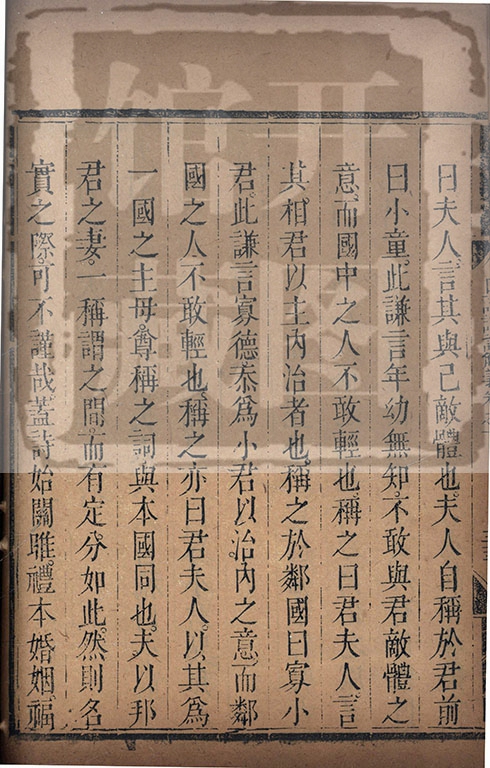 曰夫人言其與己敵體也夫人自稱於君前
曰小童此謙言年幼無知不敢與君敵體之
意而國中之人不敢輕也稱之曰君夫人言
其相君以主內治者也稱之於鄰國曰寡小
君此謙言寡德忝為小君以治內之意而鄰
國之人不敢輕也稱之亦曰君夫人以其為
一國之主母尊稱之詞與本國同也夫以邦
君之妻一稱謂之間而有定分如此然則名
實之際可不謹哉蓋詩始關雎禮本婚姻福